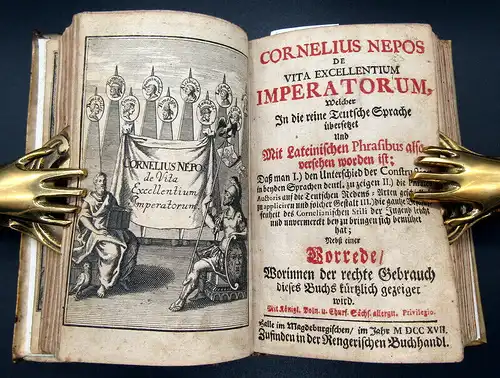 CORNELIUS NEPOS
de Vita
Excellentium
Imperatorum
CORNELIUS NEPOS
DE
VITA EXCELLENTIUM
IMPERATORUM,
Welcher
In die reine Teutsche Sprache
übersetzet
Und
Mit Lateinischen Phrasibus also
versehen worden ist;
Daß man I.) den Unterschied der
in beyden Sprachen deutl. zu zeigen II.) die
Autoris auf die Teutschen Redens-Arten
zu appliciren und solcher Gestalt III.) die gantze
fenheit des Cornelianischen Stili der Jugend leicht
und unvermerckt bey zu bringen sich bemühet
hat;
Nebst einer
Vorrede/
Worinnen der rechte Gebrauch
dieses Buchs kürtzlich gezeiget
wird.
Mit Königl. Poln. u. Churf. Sächs. allergn. Privilegio.
Halle im Magdeburgischen/ im Jahr M DCC XVII.
Zufinden in der Rengerischen Buchhandl.